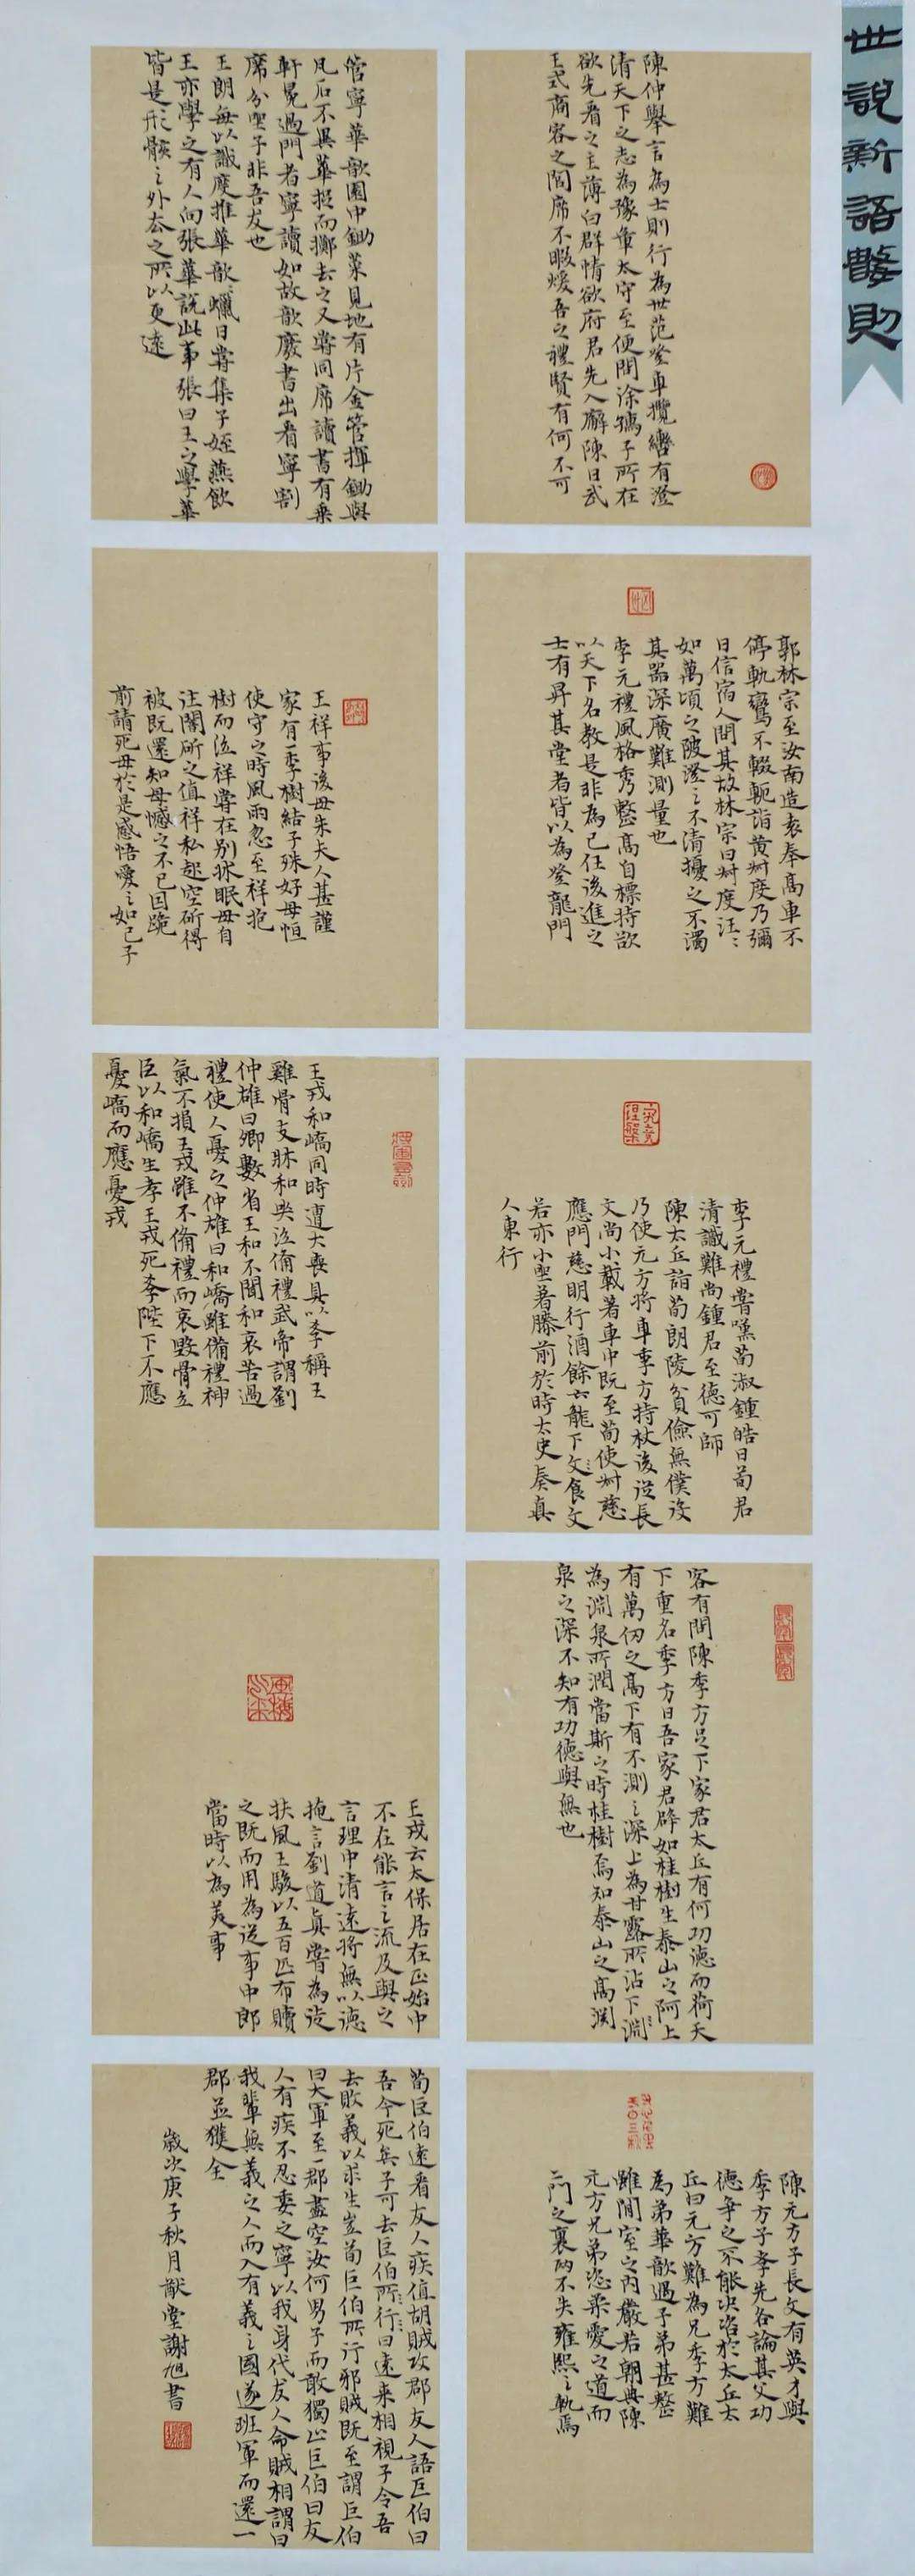 世說新語數則
陳仲舉言為士則行為世范登車攬轡有澄
清天下之志為豫章太守至便問徐孺子所在
欲先看之主薄白群情欲府君先入廨陳曰武
王式商容之閭席不暇煖吾之禮賢有何不可
管寧華歆園中鋤菜見地有片金管揮鋤與
凡石不異華捉而擲去之又嘗同席讀書有乘
軒冕過門者寧讀如故歆廢書出看寧割
席分坐子非吾友也
王朗每以識度推華歆歆蠟日嘗集子姪燕飲
王亦學之有人向張華說此事張曰王之學華
皆是形骸之外去之所以更遠
郭林宗至汝南造袁奉高車不
停軌鸞不輟軛詣黄叔度乃彌
日信宿人問其故林宗曰叔度汪〻
如萬頃之陂澄之不清擾之不濁
其器深廣難測量也
李元禮風格秀整高自標持欲
以天下名教是非為己任後進之
士有昇其堂者皆以為登龍門
王祥事後母朱夫人甚謹
家有一李樹結子殊好母恒
使守之時風雨忽至祥抱
樹而泣祥嘗在别牀眠母自
往闇斫之值祥私起空斫得
被既還知母憾之不已因跪
前請死母於是感悟愛之如己子
李元禮嘗嘆荀淑鍾皓曰荀君
清識難尚鍾君至德可師
陳太丘詣荀朗陵貧儉無僕役
乃使元方將車季方持杖後從長
文尚小載著車中既至荀使叔慈
應門慈明行酒餘六龍下文食文
若亦小坐著膝前於時太史奏真
人東行
王戎和嶠同時遭大喪具以孝稱王
雞骨支牀和哭泣備禮武帝謂劉
仲雄曰卿數省王和不聞和哀苦過
禮使人憂之仲雄曰和嶠雖備禮神
氣不損王戎雖不備禮而哀毀骨立
臣以和嶠生孝王戎死孝陛下不應
憂嶠而應憂戎
客有問陳季方足下家君太丘有何功德而荷天
下重名季方曰吾家君辟如桂樹生泰山之阿上
有萬仞之高下有不測之深上為甘露所沾下淵
為淵泉所潤當斯之時桂樹焉知泰山之高淵
泉之深不知有功德與無也
王戎云太保居在正始中
不在能言之流及與之
言理中清遠將無以德
掩言劉道真嘗為徒
扶風王駿以五百匹布贖
之既而用為從事中郎
當時以為美事
陳元方子長文有英才與
季方子孝先各論其父功
德爭之不能决咨於太丘太
丘曰元方難為兄季方難
為弟華歆遇子弟甚整
雖閒室之内嚴若朝典陳
元方兄弟恣柔愛之道而
二門之裏两不失雍熙之軌焉
荀巨伯遠看友人疾值胡賊攻郡友人語巨伯曰
吾今死矣子可去巨伯所〻行〻曰遠来相視子令吾
去敗義以求生豈荀巨伯所行邪賊既至謂巨伯
曰大軍至一郡盡空汝何男子而敢獨止巨伯曰友
人有疾不忍委之寧以我身代友人命賊相謂曰
我輩無義之人而入有義之國遂班軍而還一
郡並獲全
歲次庚子秋月猷堂謝旭書